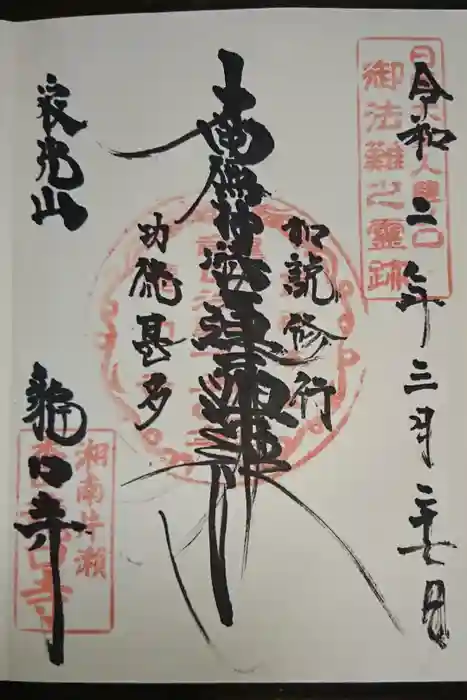 日蓮大聖人龍口
御法難之靈跡
令和二年三月二十七日
如説修行
南無妙法蓮華経
功徳甚多
寂光山
龍口寺
湘南片瀬
龍口寺